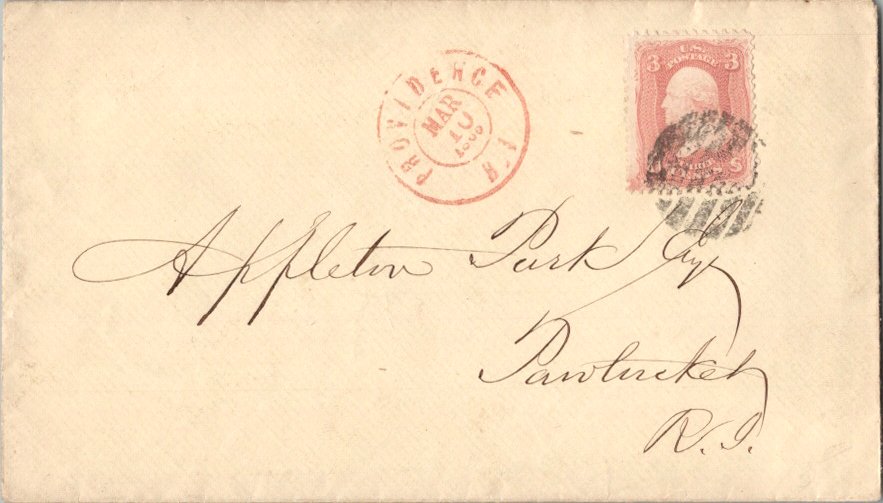 PROVIDENCE R.I
MAR
10
U.S.
POSTAGE
3 3
Appleton Park Esq
Pawtucket
R. I.